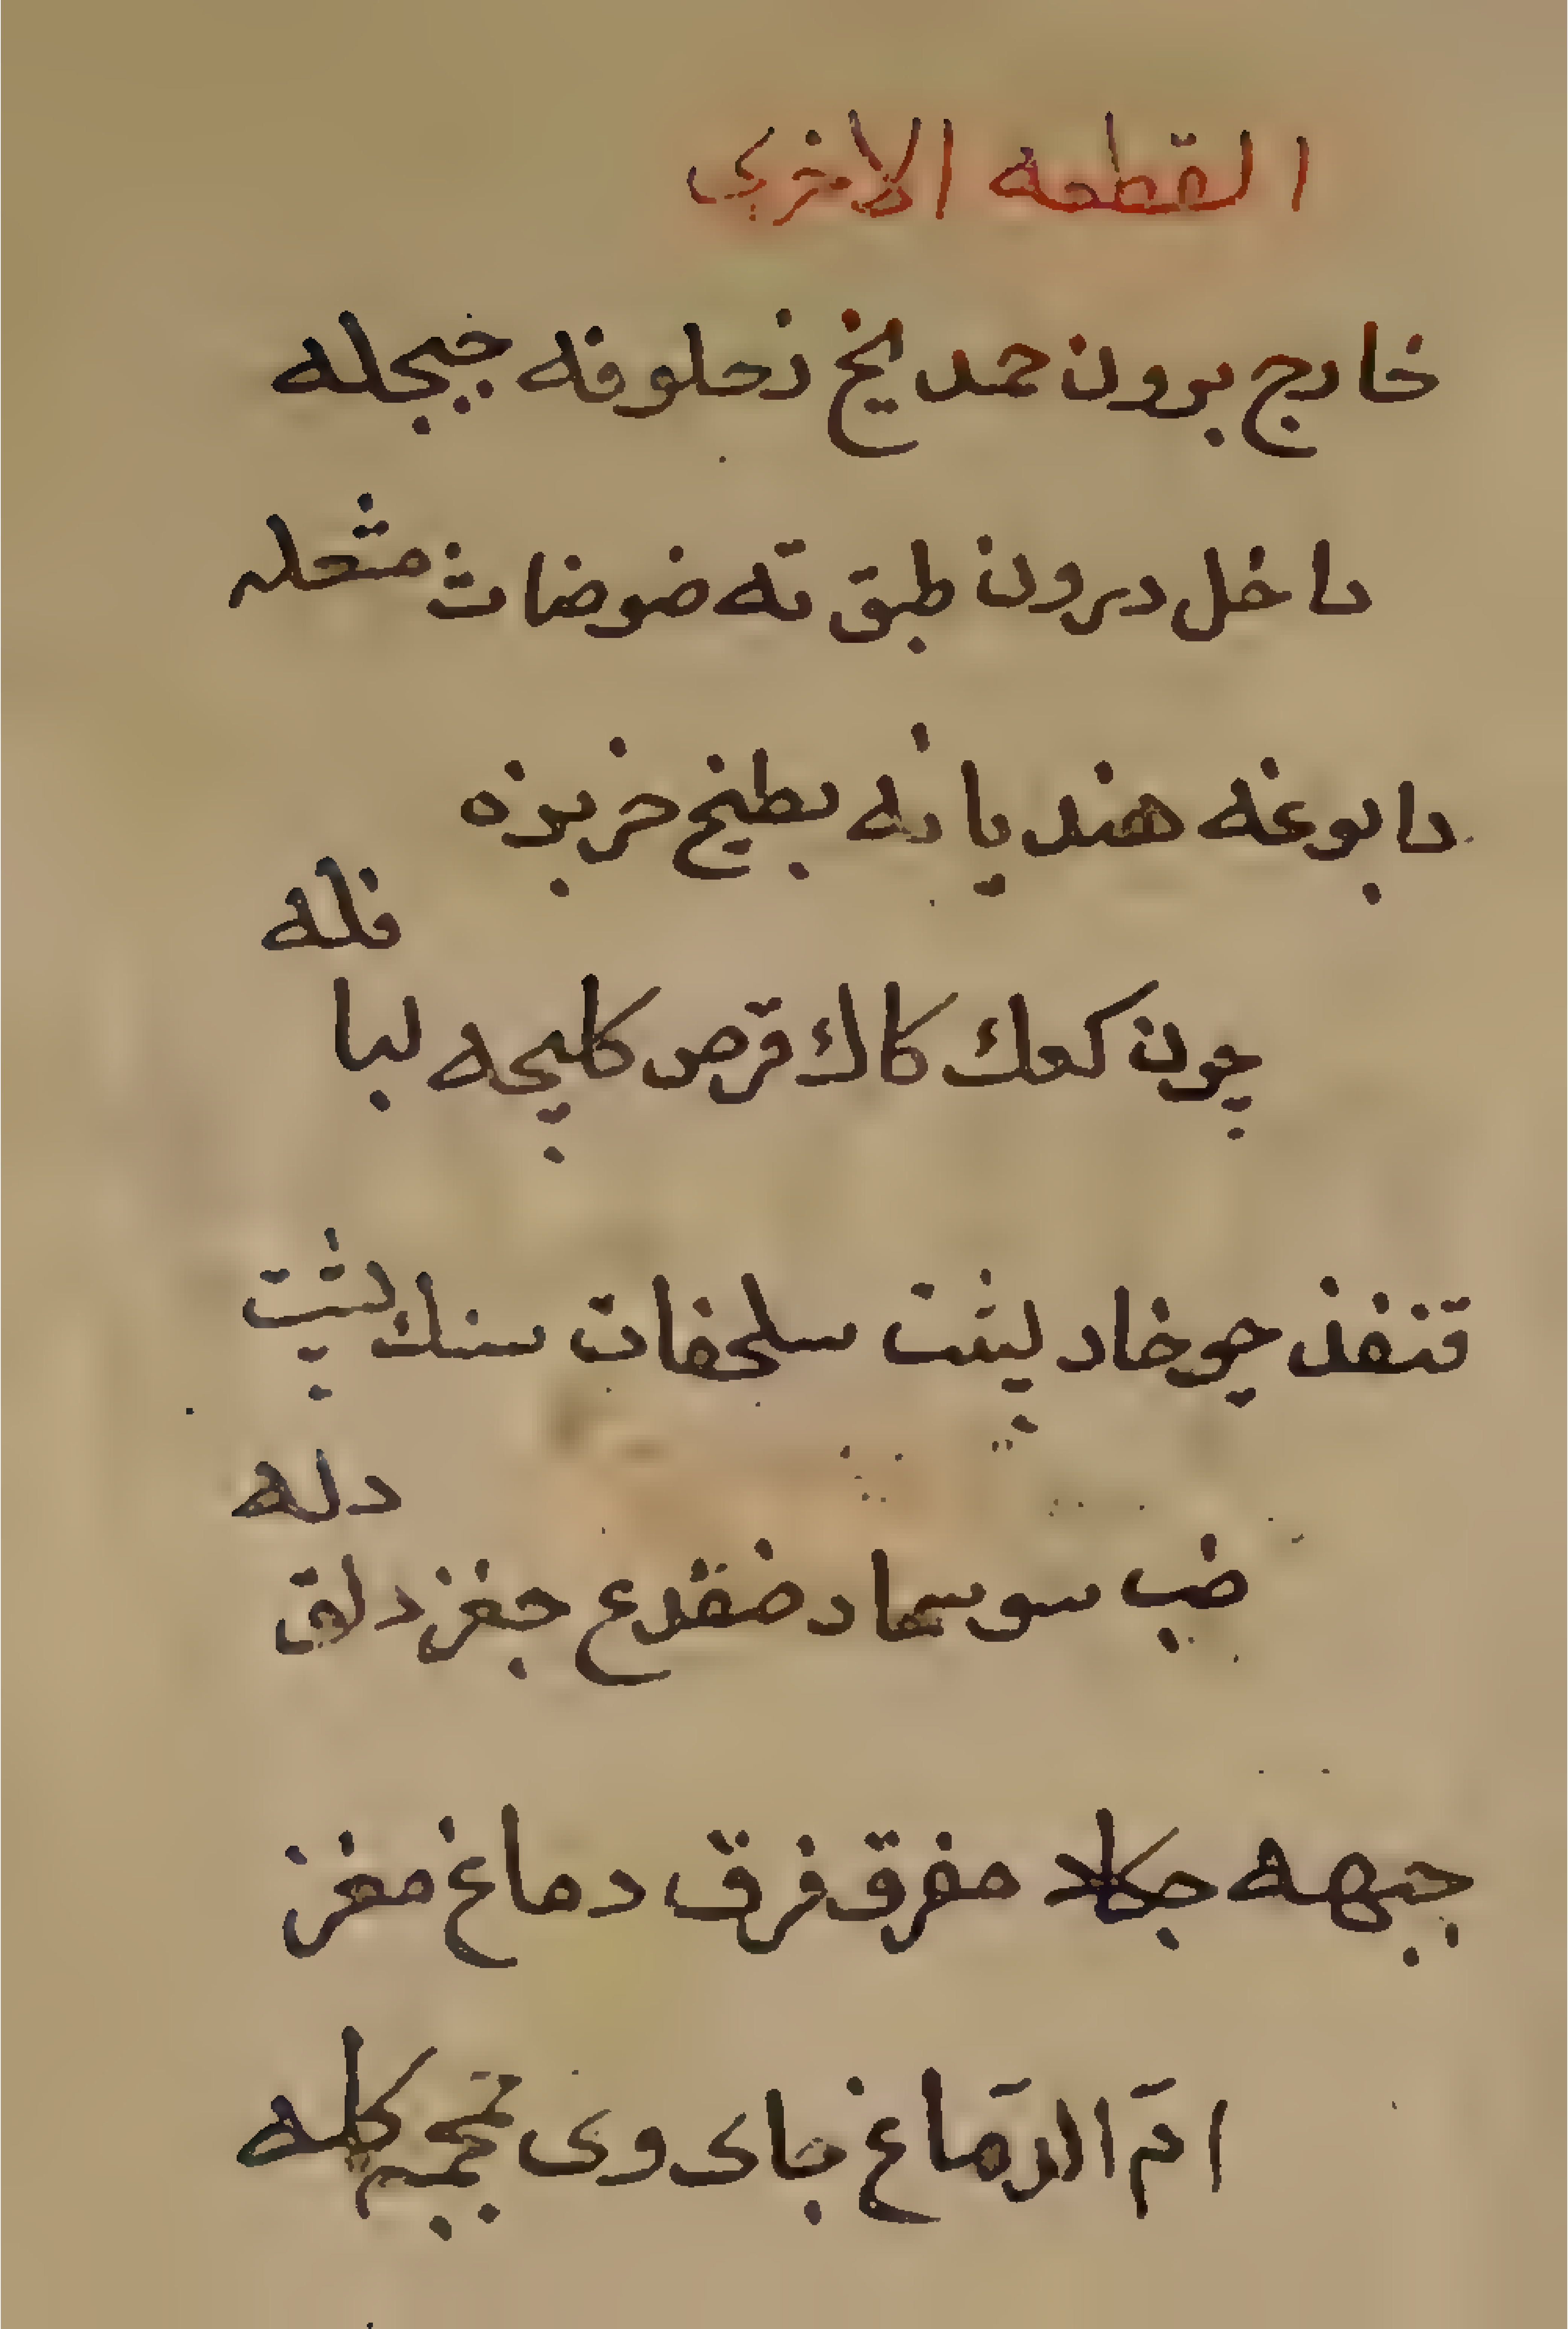 القطعه الاخرى
خارج برون حمد يخ زحلوفه خيجله
داخل درون طبق ته ضوضات مشعله
دابوغه هندیانه بطيخ خربزه
فله
چون كعك كاك قرص كليچه لبا
قنفذ جوخاد پشت سلحفات سنك پشت
دله
ضب سوسمار ضفدع جغز دلق
جبهه جكاد مفرق فرق دماغ مغز
امّ الدّماغ جاى وى جمجمه كله